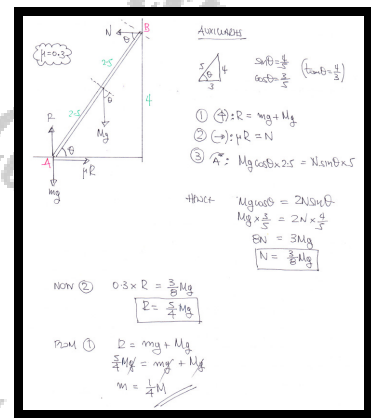 μ=0.3
N
B
θ
2.5
2.5
θ
4
Mg
R
A
θ
μR
mg
AUXILIARIES
5
θ
4
3
sinθ=4/5
cosθ=3/5
(tanθ=4/3)
① (↑): R = mg + Mg
② (→): μR = N
③ A: Mgcosθ×2.5 = Nsinθ×5
HENCE Mgcosθ = 2Nsinθ
Mg × 3/5 = 2N × 4/5
8N = 3Mg
N = 3/8 Mg
NOW ② 0.3 × R = 3/8 Mg
R = 5/4 Mg
FROM ① R = mg + Mg
5/4 Mg = mg + Mg
m = 1/4 M